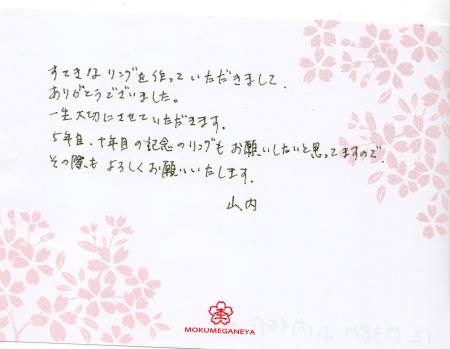 すてきなリングを作っていただきまして、
ありがとうございました。
一生大切にさせていただきます。
5年目、十年目の記念のリングもお願いしたいと思ってますので
その際もよろしくお願いいたします。
山内
MOKUMEGANEYA